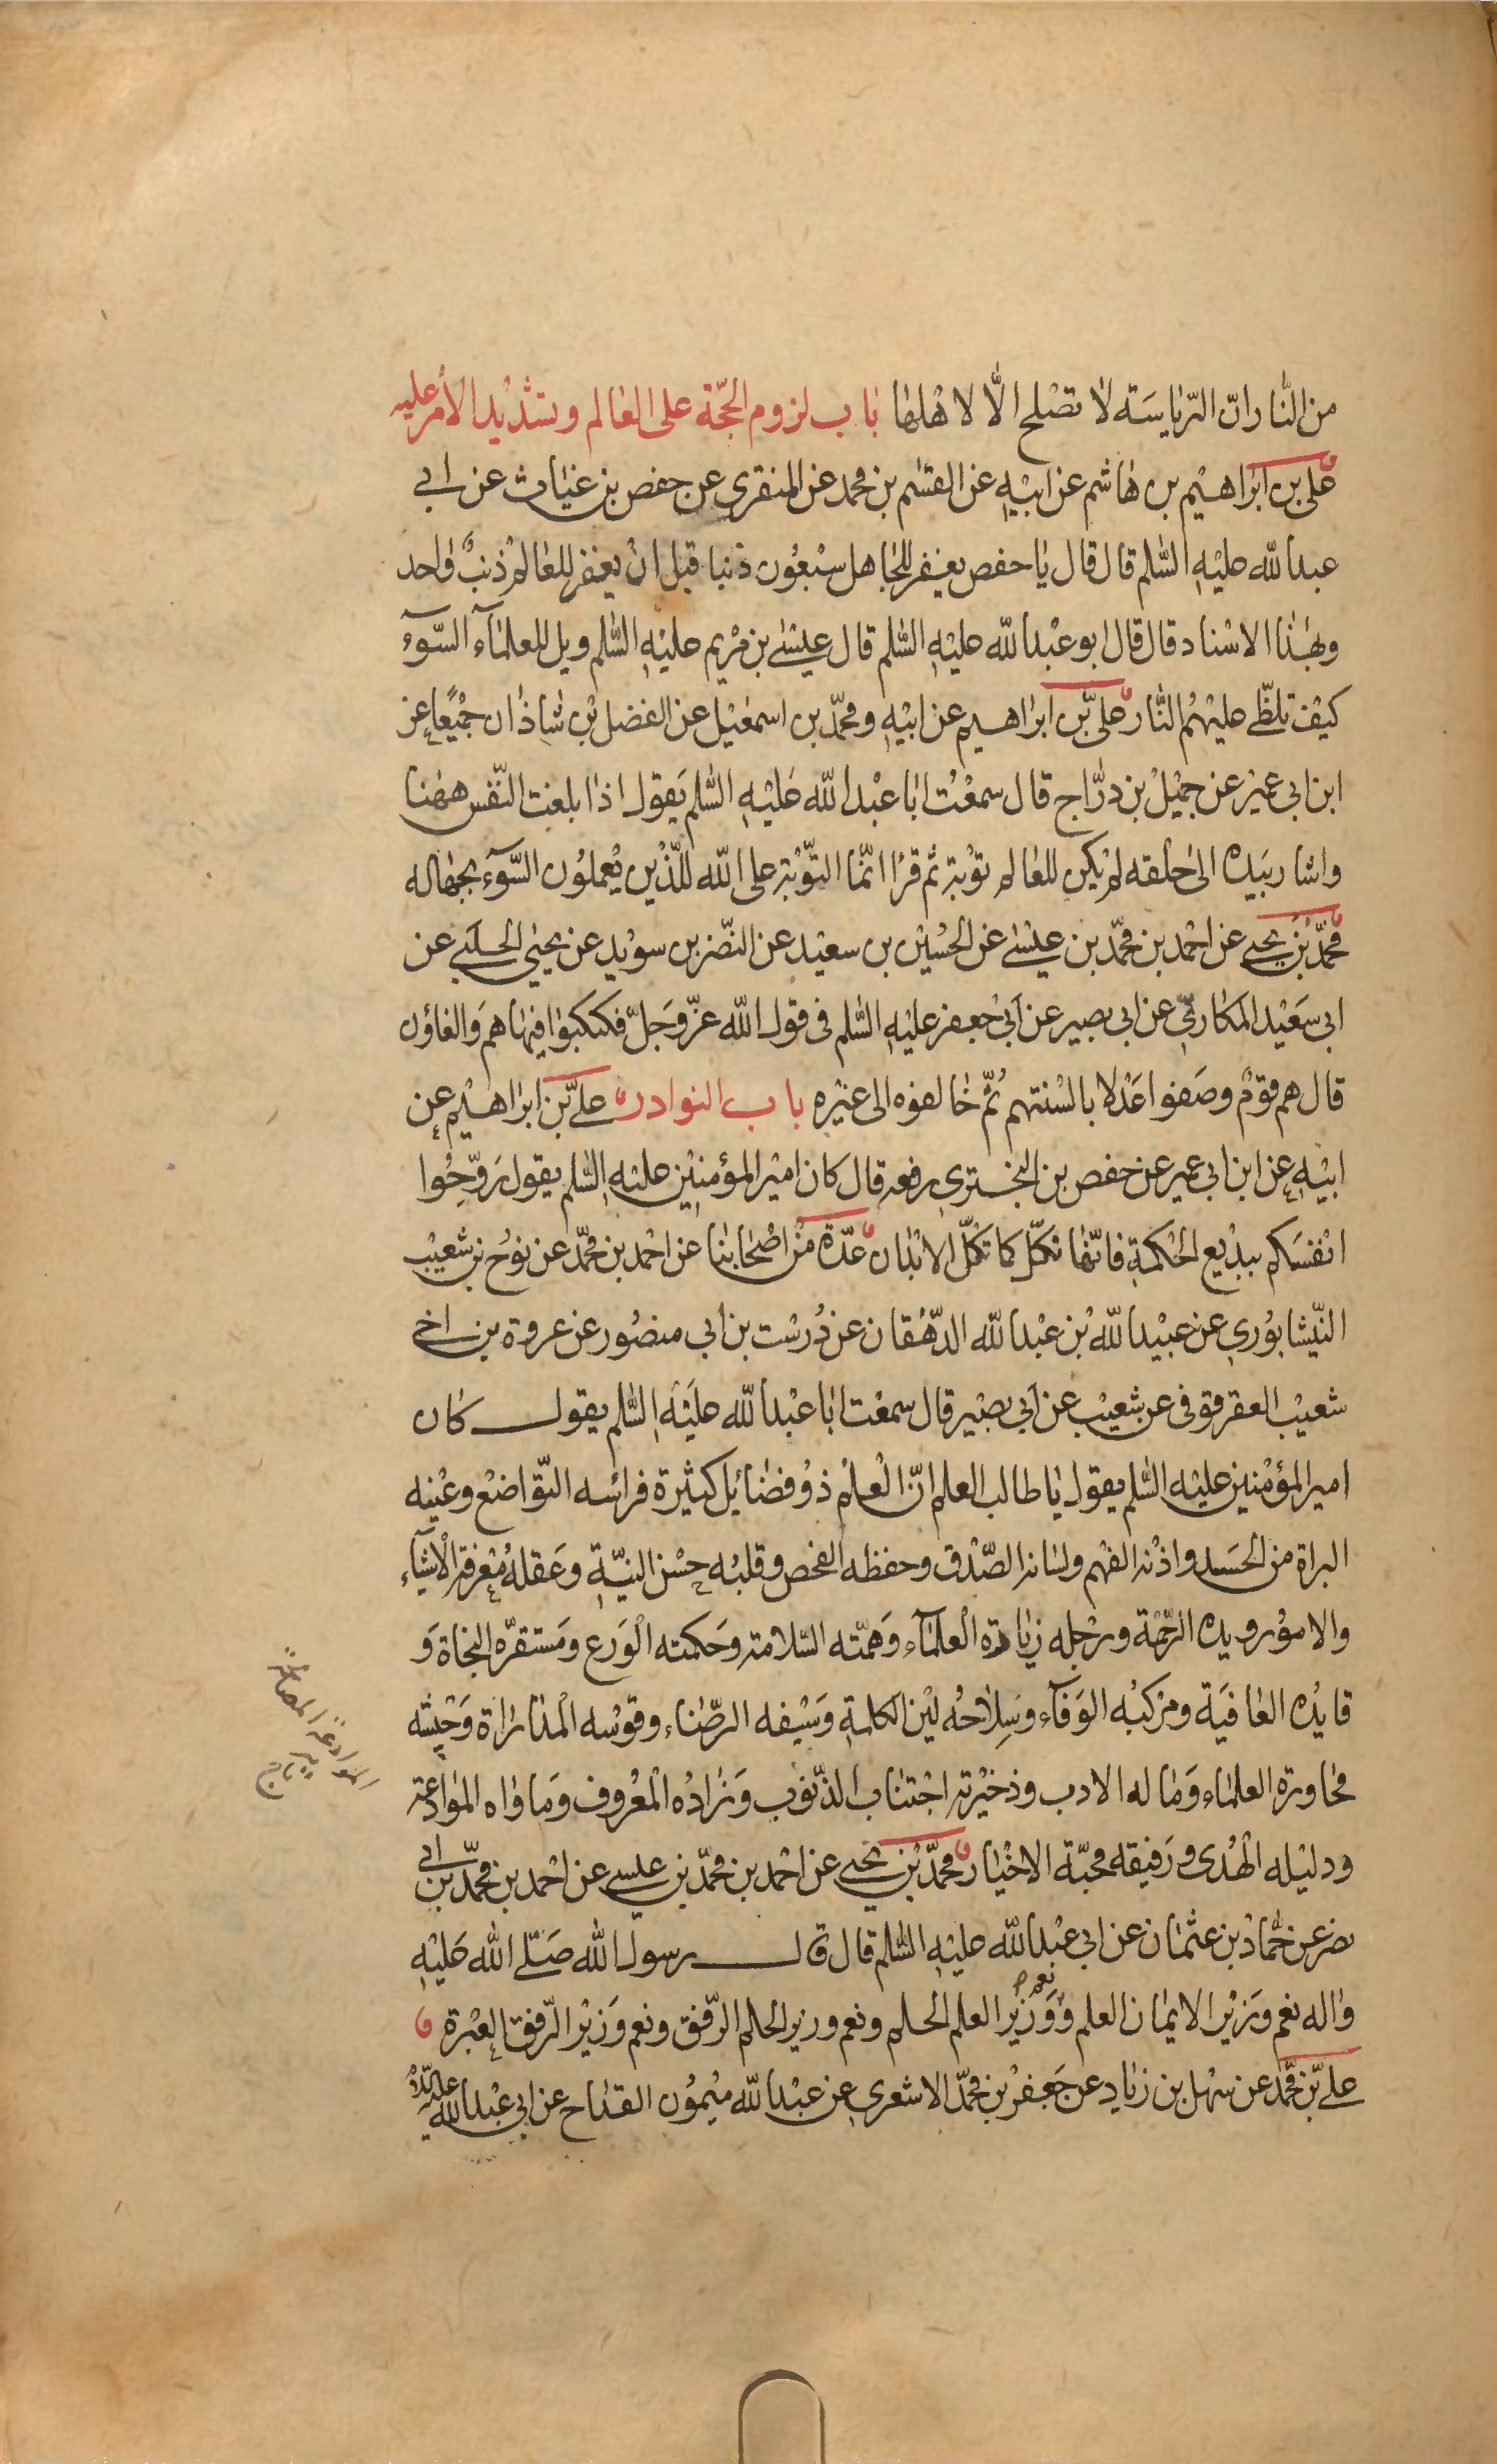 من النار ان الریاسة لا تصلح الّا لاهلها باب لزوم الحجّة على العالم وتشدید الأمر علیه
علی بن ابراهیم بن هاشم عن ابیه عن القسم بن محمد عن المنقری عن حفص بن غیاث عن ابی
عبد الله علیه السّلم قال قال یا حفص یغفر للجاهل سبعون ذنبا قبل ان یغفر للعالم ذنبٌ واحد
وبهذا الاسناد قال قال ابو عبد الله علیه السّلم قال عیسى بن مریم علیه السّلم ویل للعلمآء السّوء
کیف تلظّى علیهم النّار علی بن ابراهیم عن ابیه ومحمّد بن اسمعیل عن الفضل بن شاذان جمیعًا عن
ابن ابی عمیر عن جمیل بن درّاج قال سمعت ابا عبد الله علیه السّلم یقول اذا بلغت النّفس ههنا
واشار بیده الى حلقه لم یکن للعالم توبة ثم قرا انّما التّوبة على الله للّذین یعملون السّوٓء بجهاله
محمّد بن یحیى عن احمد بن محمّد بن عیسى عن الحسین بن سعید عن النّضر بن سوید عن یحیى الحلبی عن
ابی سعید المکاری عن ابی بصیر عن ابی جعفر علیه السّلم فی قول الله عزّ وجلّ فکبکبوا فیها هم والغاؤن
قال هم قومٌ وصفوا عدلا بالسنتهم ثمّ خالفوه الى غیره باب النوادر علی بن ابراهیم عن
ابیه عن ابن ابی عمیر عن حفص بن البختری رفعه قال کان امیر المؤمنین علیه السّلم یقول روّحوا
انفسکم ببدیع الحکمة فانّها تکلّ کما تکلّ الابدان عدّة من اصحابنا عن احمد بن محمّد عن نوح بن شعیب
النّیشابوری عن عبید الله بن عبد الله الدّهقان عن درست بن ابی منصور عن عروة بن اخی
شعیب العقرقوفی عن شعیب عن ابی بصیر قال سمعت ابا عبد الله علیه السّلم یقول کان
امیر المؤمنین علیه السّلم یقول یا طالب العلم انّ العلم ذو فضایل کثیرة فراسه التّواضع وعینه
البراة من الحسد واذنه الفهم ولسانه الصّدق وحفظه الفحص وقلبه حسن النیّة وعقله معرفة الاشیآء
والامور ویده الرّحمة ورجله زیارة العلمآء وهمّته السّلامة وحکمته الورع ومستقرّه النجاة و
قایده العافیة ومرکبه الوفآء وسلاحه لین الکلمة وسیفه الرّضاء وقوسه المداراة وجیشه
محاورة العلماء وماله الادب وذخیرته اجتناب الذّنوب وزاده المعروف وماواه الموادعة
ودلیله الهدى ورفیقه محبّة الاخیار محمّد بن یحیى عن احمد بن محمّد بن عیسى عن احمد بن محمّد بن ابی
نصر عن حمّاد بن عثمان عن ابی عبد الله علیه السّلم قال قال رسول الله صلّى الله علیه
واله نعم وزیر الایمان العلم ونعم وزیر العلم الحلم ونعم وزیر الحلم الرّفق ونعم وزیر الرّفق العبرة
علی بن محمّد عن سهل بن زیاد عن جعفر بن محمّد الاشعری عن عبد الله میمون القداح عن ابی عبد الله علیه السّلام
الموادعة المصالحة